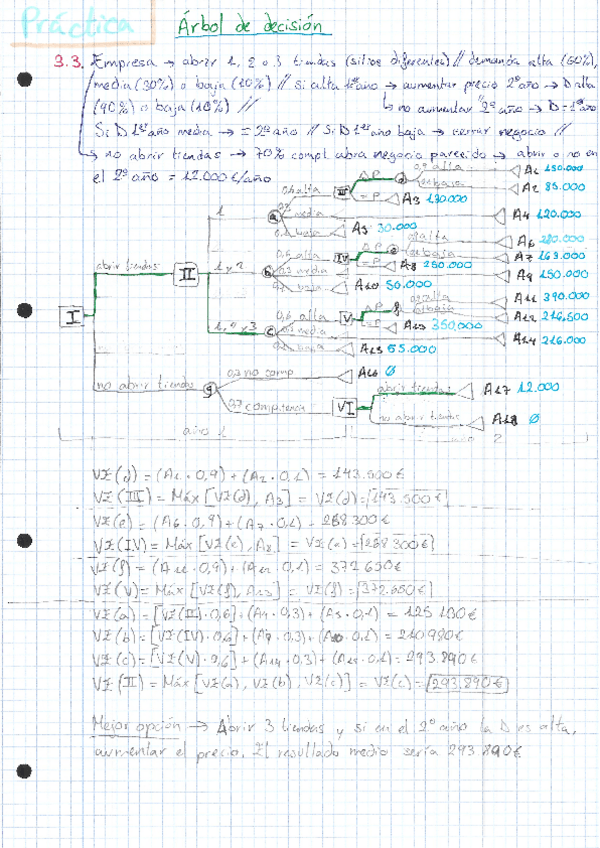 Práctica
Árbol de decisión
3.3. Empresa → abrir 1, 2 o 3 tiendas (sitios diferentes) // demanda alta (60%),
media (30%) o baja (10%) // si alta 1er año → aumentar precio 2º año → D alta
(90%) o baja (10%) // ↳ no aumentar 2º año → D = 1er año
Si D 1er año media → = 2º año // Si D 1er año baja → cerrar negocio //
↳ no abrir tiendas → 70% compt. abra negocio parecido → abrir o no en
el 2º año = 12.000 €/año
0,6 alta III ΔP d 0,9 alta A1 150.000
0,1 baja A2 85.000
= P A3 130.000
1 a media A4 120.000
0,1 baja A5 30.000
abrir tiendas II
1 y 2 b 0,6 alta IV ΔP e 0,9 alta A6
0,1 baja A7 163.000
= P A8 250.000
0,3 media A9 150.000
0,1 baja A10 50.000
I
1, 2 y 3 c 0,6 alta V ΔP f 0,9 alta A11 390.000
0,1 baja A12 216.500
= P A13 350.000
media A14 216.000
baja A15 55.000
no abrir tiendas g 0,3 no comp A16 Ø
0,7 competencia VI abrir tiendas A17 12.000
no abrir tiendas A18 Ø
año 1 año 2
VE(d) = (A1 · 0,9) + (A2 · 0,1) = 143.500 €
VE(III) = Máx [VE(d), A3] = VE(d) = 143.500 €
VE(e) = (A6 · 0,9) + (A7 · 0,1) = 268 300 €
VE(IV) = Máx [VE(e), A8] = VE(e) = 268 300 €
VE(f) = (A11 · 0,9) + (A12 · 0,1) = 372 650 €
VE(V) = Máx [VE(f), A13] = VE(f) = 372.650 €
VE(a) = [VE(III) · 0,6] + (A4 · 0,3) + (A5 · 0,1) = 125 100 €
VE(b) = [VE(IV) · 0,6] + (A9 · 0,3) + (A10 · 0,1) = 210 980 €
VE(c) = [VE(V) · 0,6] + (A14 · 0,3) + (A15 · 0,1) = 293.890 €
VE(II) = Máx [VE(a), VE(b), VE(c)] = VE(c) = 293.890 €
Mejor opción → Abrir 3 tiendas y si en el 2º año la D es alta,
aumentar el precio. El resultado medio sería 293 890 €